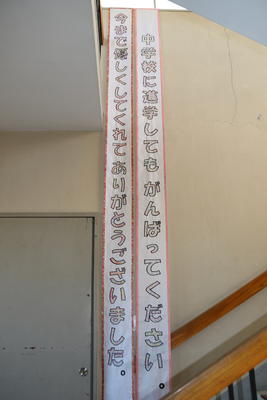 中学校に進学してもがんばってください。
今まで優しくしてくれてありがとうございました。